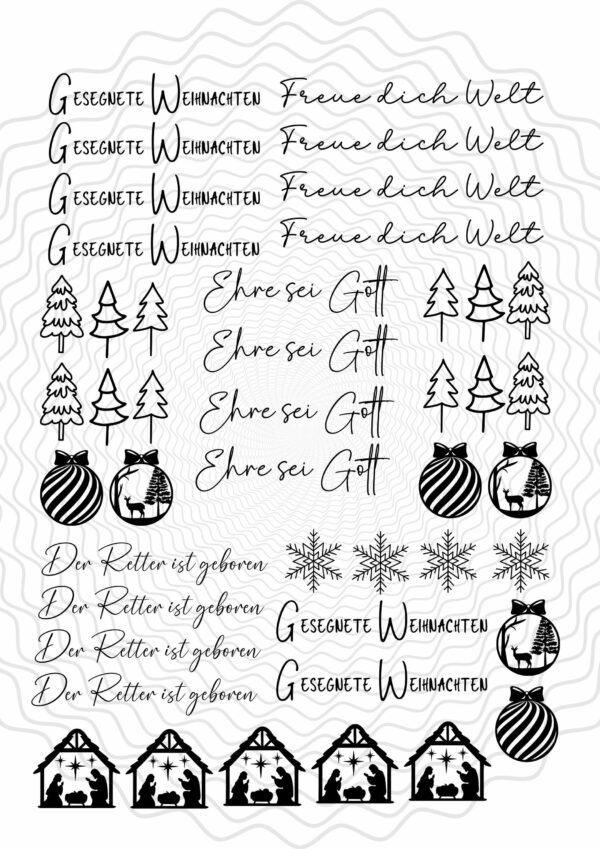 Gesegnete Weihnachten Freue dich Welt
Gesegnete Weihnachten Freue dich Welt
Gesegnete Weihnachten Freue dich Welt
Gesegnete Weihnachten Freue dich Welt
Ehre sei Gott
Ehre sei Gott
Ehre sei Gott
Ehre sei Gott
Der Retter ist geboren
Der Retter ist geboren
Der Retter ist geboren
Der Retter ist geboren
Gesegnete Weihnachten
Gesegnete Weihnachten